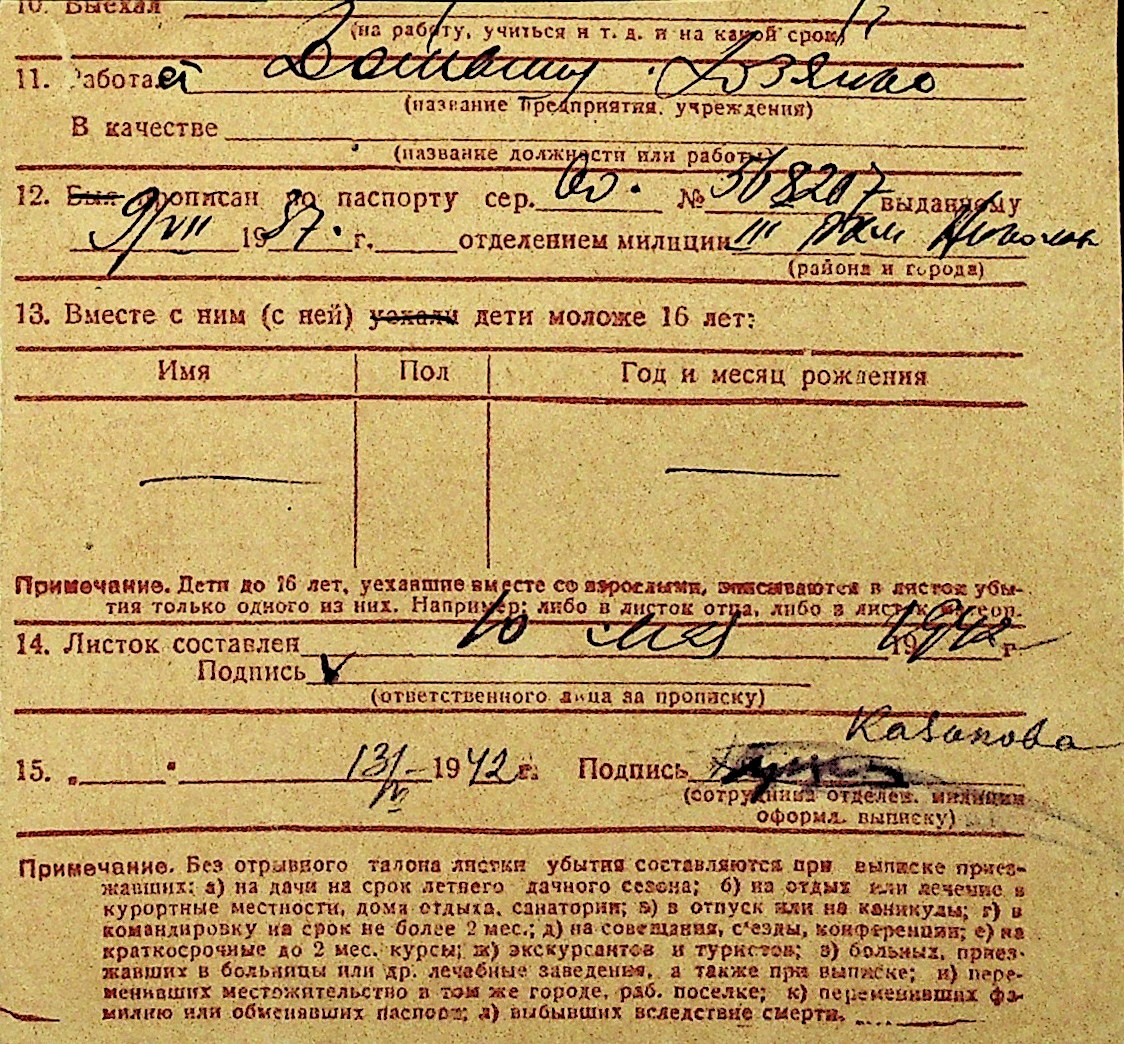 10. Выехал
(на работу, учиться и т. д. и на какой срок)
11. Работает Домашн. хозяйка
(название предприятия, учреждения)
В качестве
(название должности или работы)
12. Был прописан по паспорту сер. № 568207 выданному
9/VIII 1937. г. отделением милиции III
(района и города)
13. Вместе с ним (с ней) уехали дети моложе 16 лет:
Имя Пол Год и месяц рождения
Примечание. Дети до 16 лет, уехавшие вместе со взрослыми, вписываются в листок убы-
тия только одного из них. Например: либо в листок отца, либо в листок матери.
14. Листок составлен 10 мая 1942 г
Подпись V
(ответственного лица за прописку)
Казакова
15. „ " 13/V 1942 г. Подпись
(сотрудника отделен. милиции
оформл. выписку)
Примечание. Без отрывного талона листки убытия составляются при выписке приез-
жавших: а) на дачи на срок летнего дачного сезона; б) на отдых или лечение в
курортные местности, дома отдыха, санатории; в) в отпуск или на каникулы; г) в
командировку на срок не более 2 мес.; д) на совещания, с'езды, конференции; е) на
краткосрочные до 2 мес. курсы; ж) экскурсантов и туристов; з) больных, приез-
жавших в больницы или др. лечебные заведения, а также при выписке; и) пере-
менивших местожительство в том же городе, раб. поселке; к) переменивших фа-
милию или обменявших паспорт; л) выбывших вследствие смерти.